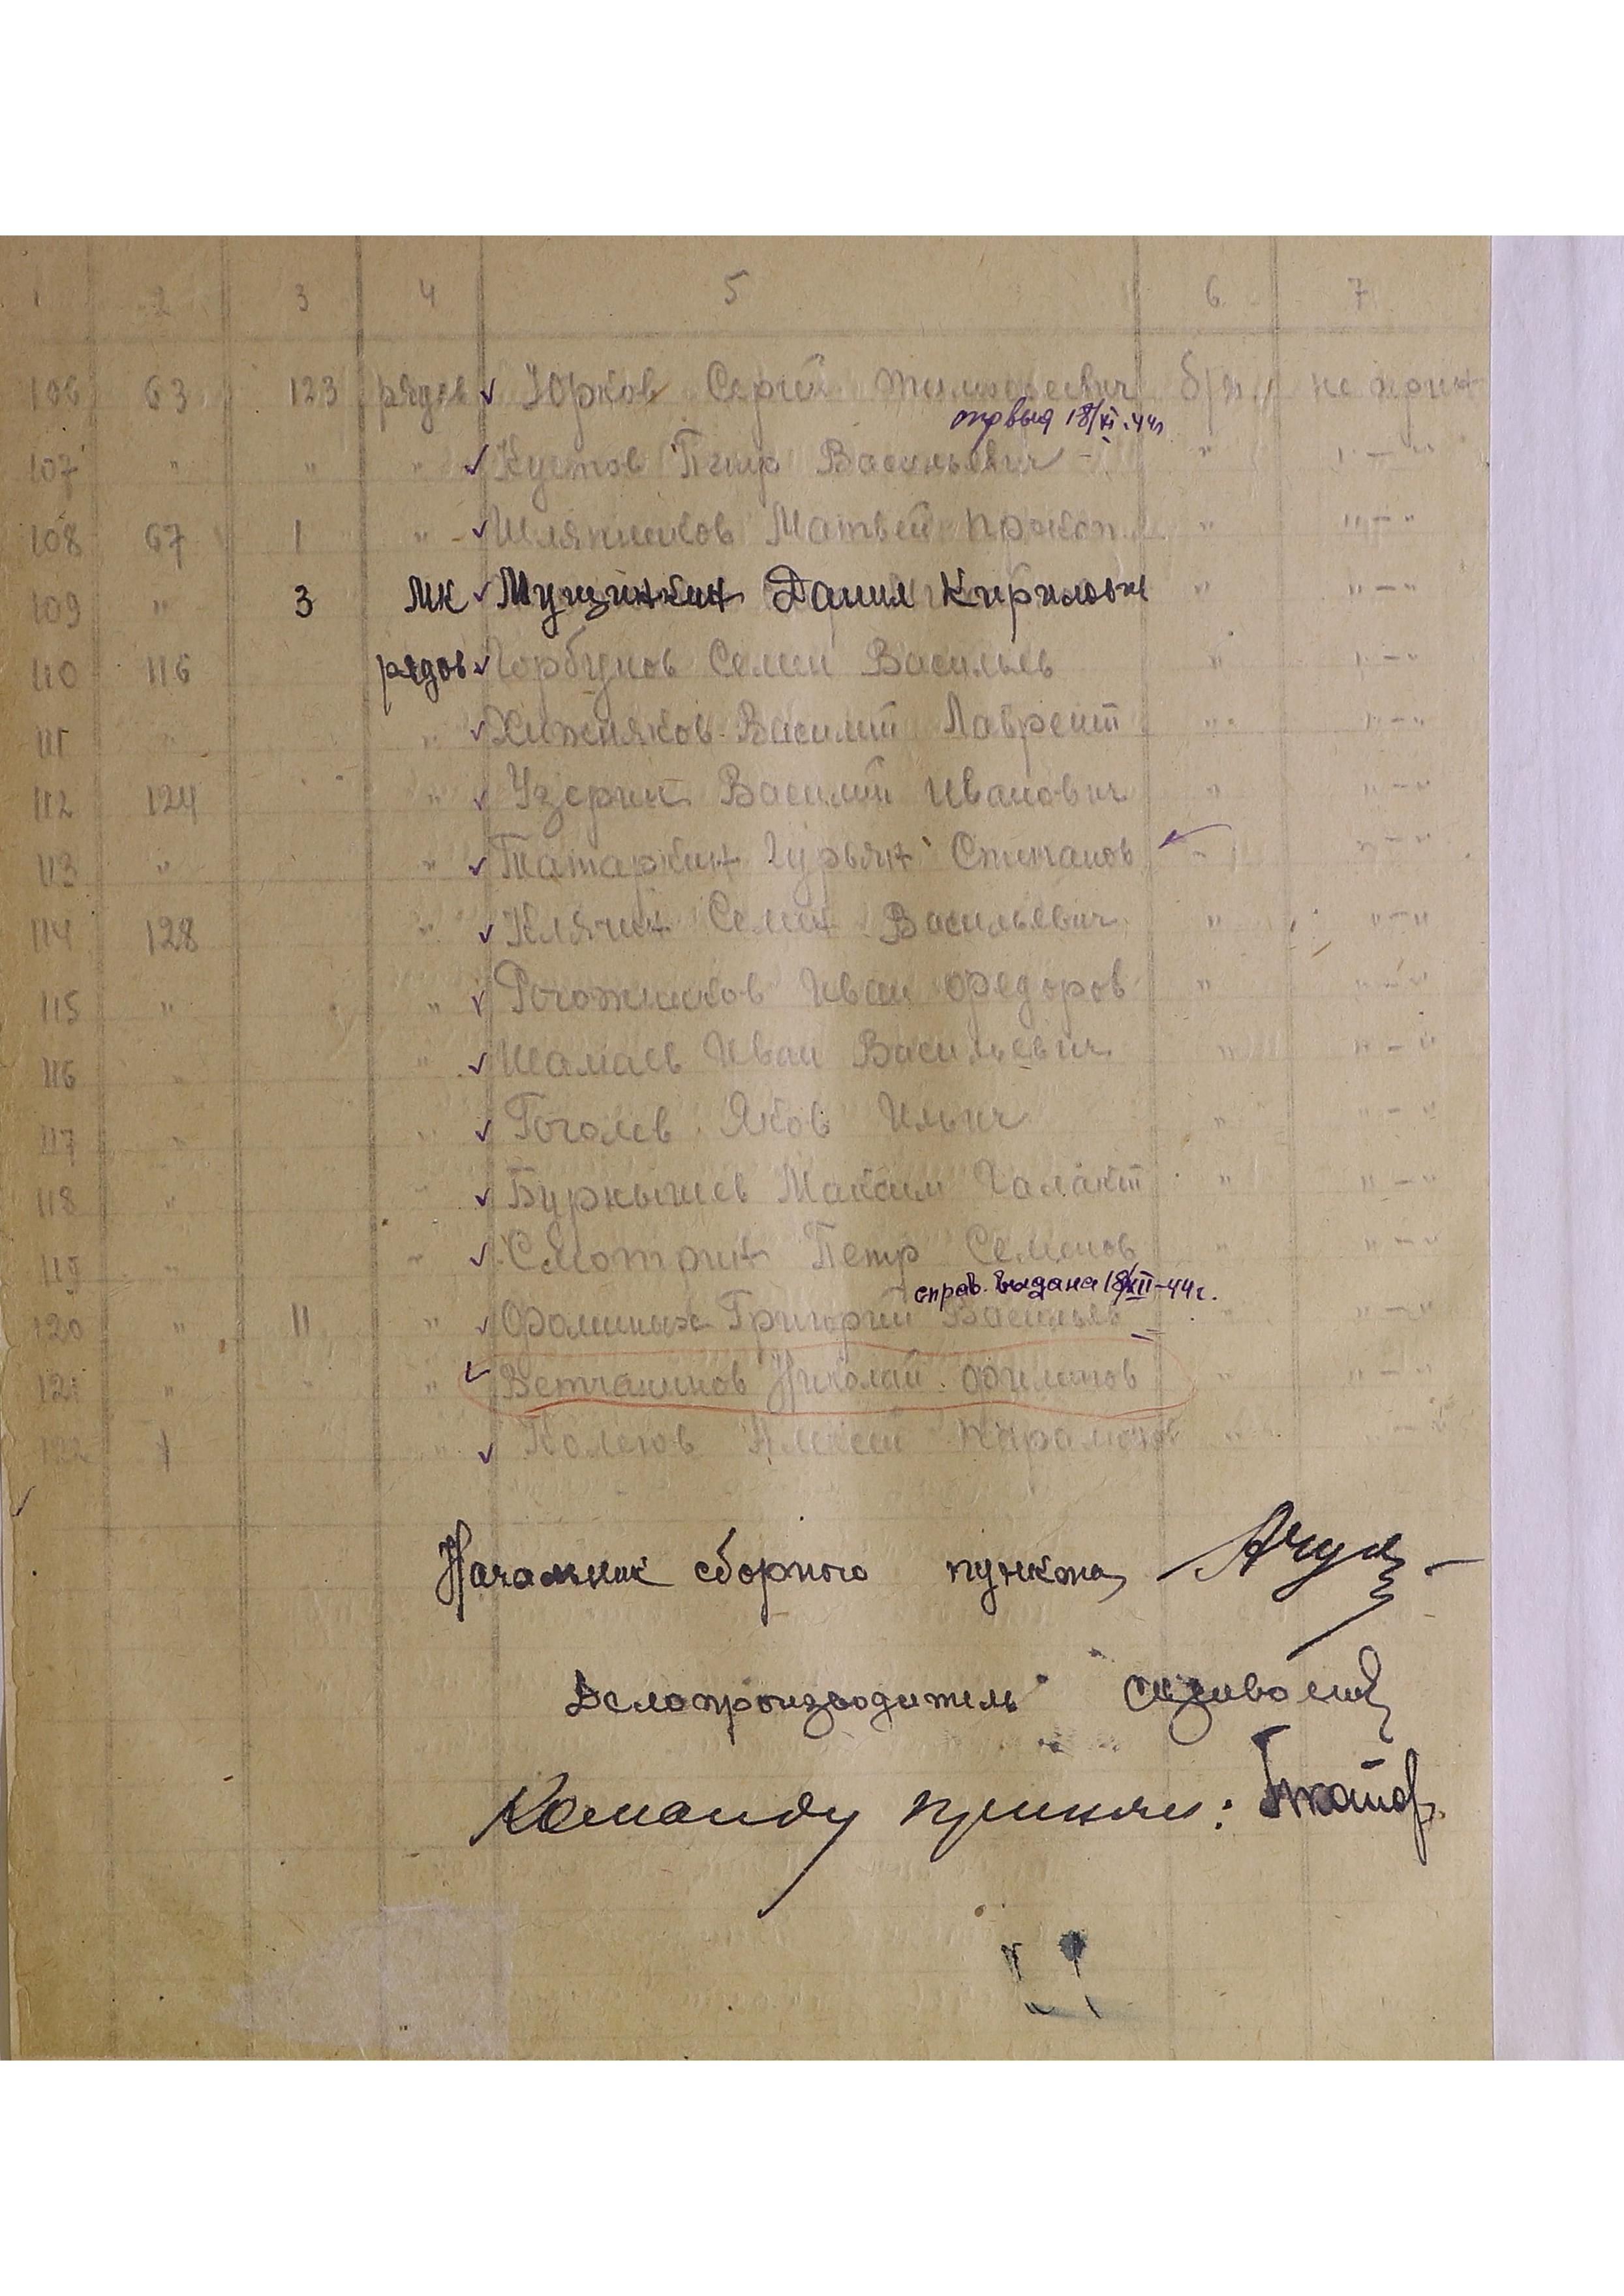 1 2 3 4 5 6 7
106 63 123 рядов Юрков Сергей Тимофеевич б/п
18/XI-44г
107 " " " Кустов Петр Васильевич " " - "
108 67 1 " Шляпников Матвей Прокоп. " " - "
109 " 3 МК Мущинкин Данил Кирилович " " - "
110 116 рядов Горбунов Семен Васильев " " - "
111 " " Хижняков Василий Лаврент " " - "
112 124 " Узерин Василий Иванович " " - "
113 " " Татаркин Гурьян Степанов " " - "
114 128 " Клячин Семен Васильевич " " - "
115 " " Рогожников Иван Федоров " " - "
116 " " Шамаев Иван Васильевич " " - "
117 " " Гоголев Яков Ильич " " - "
118 " " Бурнышев Максим Галакт " " - "
119 " " Смотрин Петр Семенов " " - "
справ. выдана 18/XII-44г.
120 " 11 " Фоминых Григорий Васильев " " - "
121 " " " Ветчанинов Николай Филипов " " - "
122 " Алексей " " - "
Начальник сборного пункта
Делопроизводитель
Команду принял: